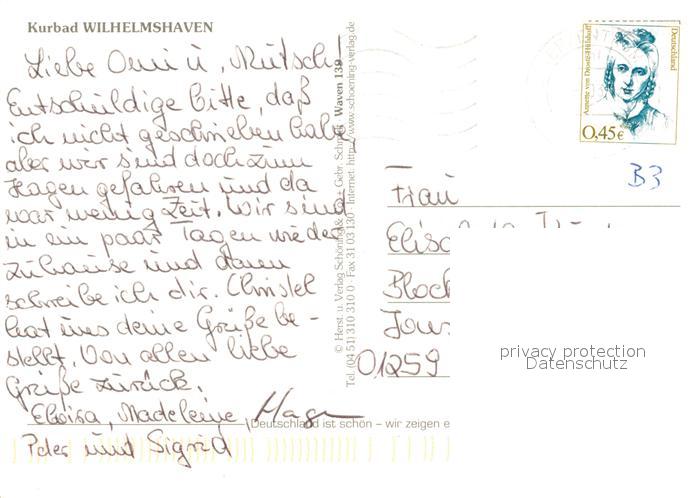 Kurbad WILHELMSHAVEN
Liebe Omi u. Mutsch!
Entschuldige bitte, daß
ich nicht geschrieben habe,
aber wir sind doch zum
Hagen gefahren und da
war wenig Zeit. Wir sind
in ein paar Tagen wieder
zuhause und dann
schreibe ich dir. Christel
hat uns deine Grüße be-
stellt. Von allen liebe
Grüße zurück.
Eloisa, Madeleine, Hagen
Peter und Sigrid
© Herst. u. Verlag Schöning & Co + Gebr. Schmidt Waven 139
Tel. (04 51) 310 310 0 · Fax 31 03 130 · Internet: http://www.schoening-verlag.de
Deutschland ist schön – wir zeigen e
Annette von Droste-Hülshoff
Deutschland
0,45€
B3
Frau
Elisa
Bloch
01259
privacy protection
Datenschutz